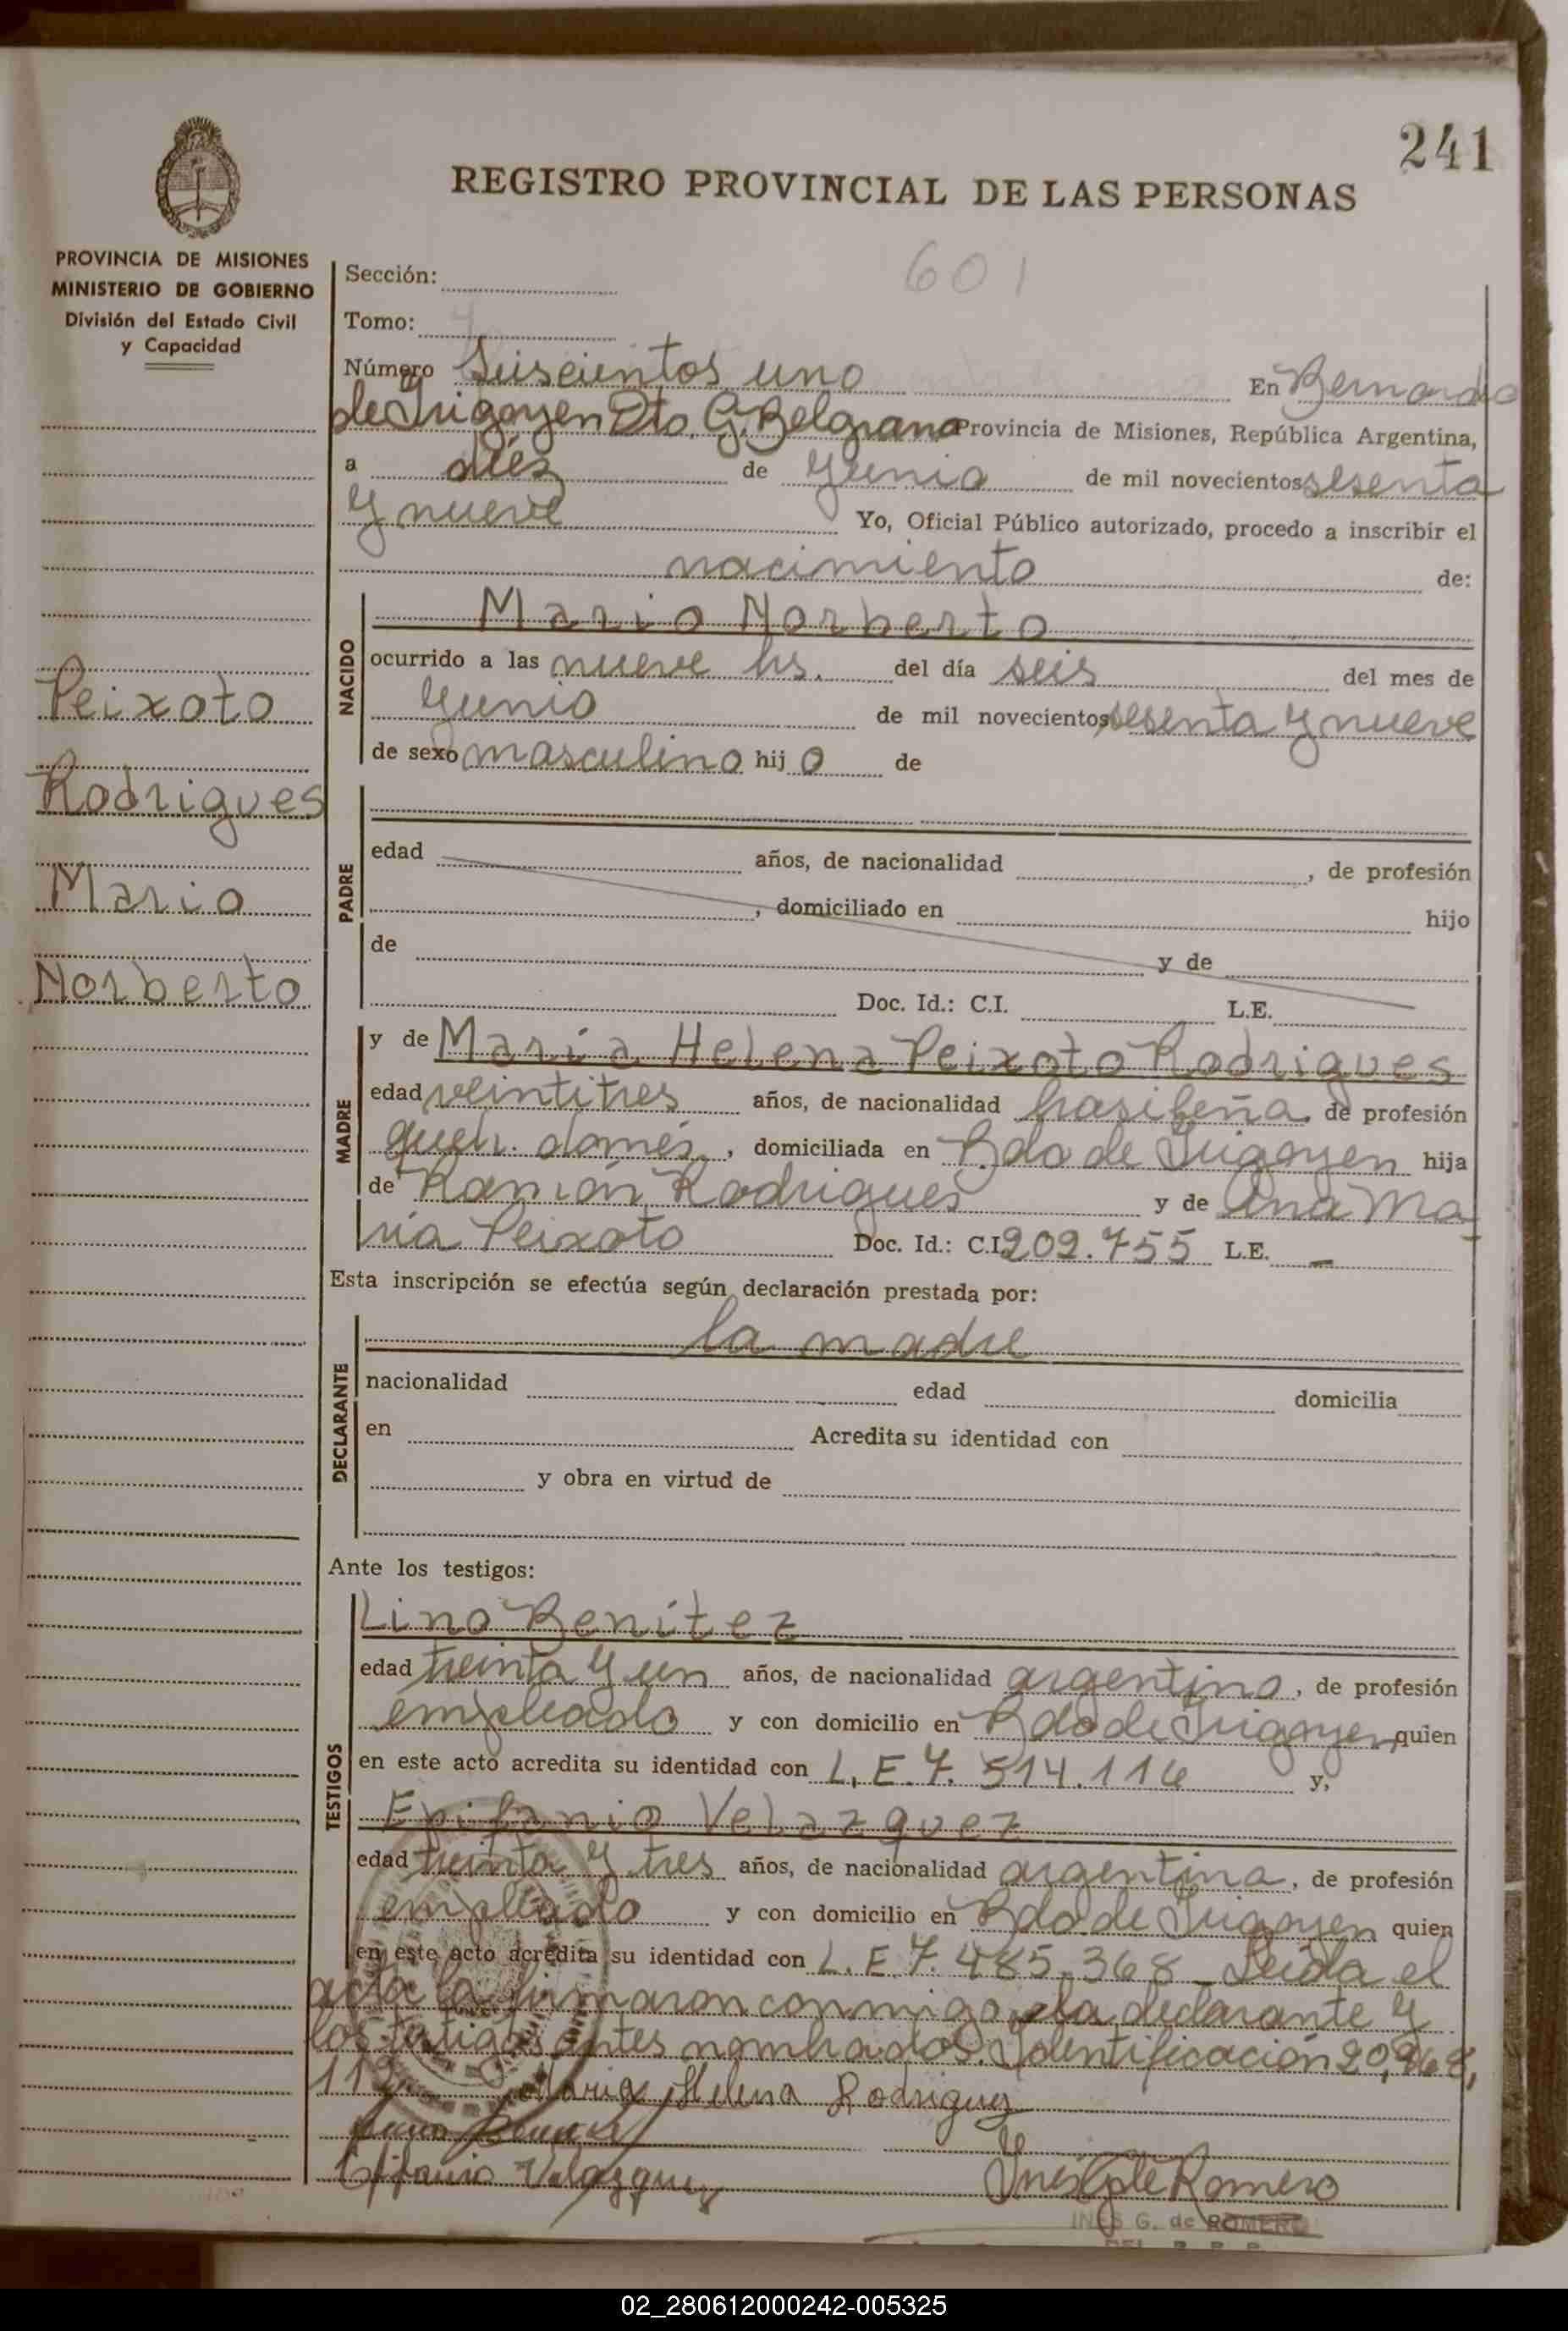 241
REGISTRO PROVINCIAL DE LAS PERSONAS
PROVINCIA DE MISIONES
MINISTERIO DE GOBIERNO
División del Estado Civil
y Capacidad
601
Sección:
Tomo:
Número Seiscientos uno En Bernardo
de Irigoyen Dto. G. Belgrano Provincia de Misiones, República Argentina,
a diez de Junio de mil novecientos sesenta
y nueve Yo, Oficial Público autorizado, procedo a inscribir el
nacimiento de:
Peixoto
Rodrigues
Mario
Norberto
NACIDO
Mario Norberto
ocurrido a las nueve hs. del día seis del mes de
Junio de mil novecientos sesenta y nueve
de sexo masculino hij o de
PADRE
edad años, de nacionalidad , de profesión
, domiciliado en hijo
de y de
Doc. Id.: C.I. L.E.
MADRE
y de María Helena Peixoto Rodrigues
edad veintitres años, de nacionalidad brasileña, de profesión
queh. domés., domiciliada en Bdo de Irigoyen hija
de Ramón Rodrigues y de Ana Ma
ria Peixoto Doc. Id.: C.I. 202.755 L.E. —
Esta inscripción se efectúa según declaración prestada por:
DECLARANTE
la madre
nacionalidad edad domicilia
en Acredita su identidad con
y obra en virtud de
Ante los testigos:
TESTIGOS
Lino Benítez
edad treinta y un años, de nacionalidad argentino, de profesión
empleado y con domicilio en Bdo de Irigoyen quien
en este acto acredita su identidad con L.E. 7.514.116 y,
Epifanio Velazquez
edad treinta y tres años, de nacionalidad argentina, de profesión
empleado y con domicilio en Bdo de Irigoyen quien
en este acto acredita su identidad con L.E. 7.485.368 _ Leída el
acta la firmaron conmigo la declarante y
los testigos antes nombrados. Identificación 20,968,
112
Maria Helena Rodriguez
Epifanio Velazquez
Ines G de Romero
INES G. de ROMERO
02_280612000242-005325